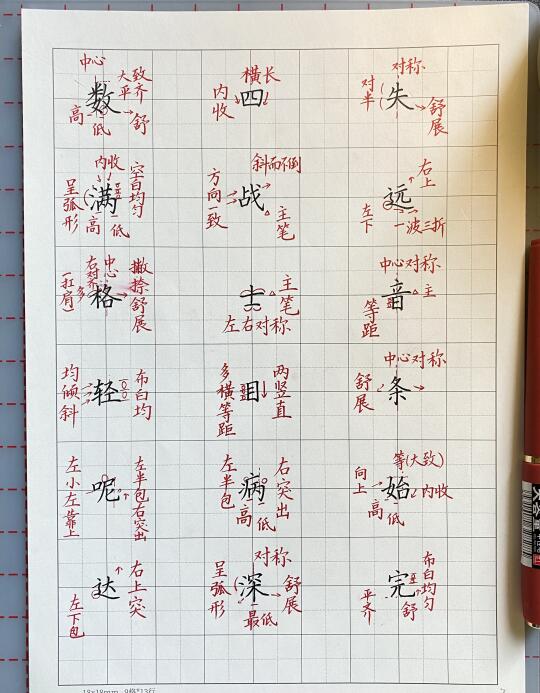 中心
大致平齐
数
高
低
舒
横长
内收
四
对称
对半
失
舒展
内收
空白均匀
呈弧形
满
高
低
斜而不倒
方向一致
战
主笔
右上
远
左下
一波三折
右对齐
中心
撇捺舒展
(扛肩)
多
格
士
主笔
左右对称
中心对称
音
主
等距
均倾斜
轻
布白均
多横等距
目
两竖直
中心对称
舒展
条
左小左靠上
呢
左半包右突出
左半包
病
右突出
高
低
等(大致)
向上
始
内收
高
低
达
右上突
左下包
对称
呈弧形
深
舒展
最低
布白均匀
完
平齐
舒
18x18mm 9格*13行